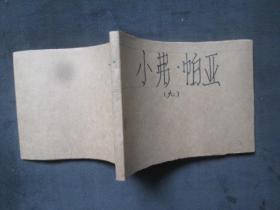 小弗·帕亚
(九)